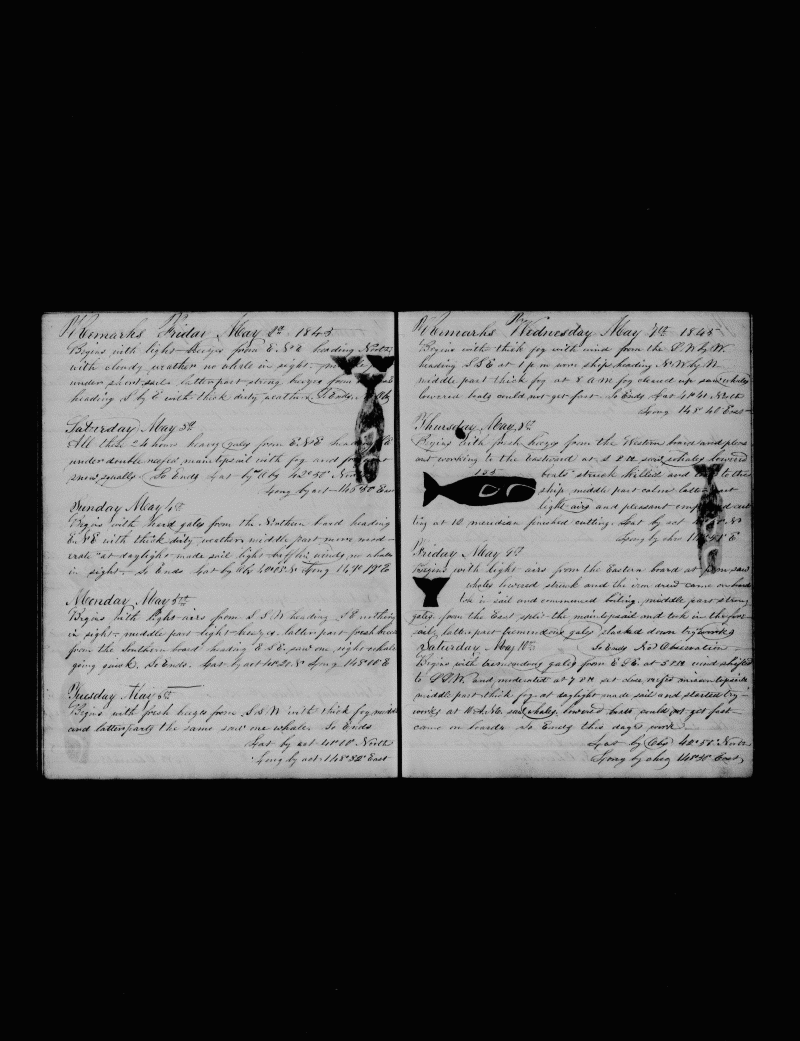 Remarks Friday May 2d 1845
Begins with light breezes from E.N.E heading North
with cloudy weather no whale in sight
under short sails latter part strong breezes from
heading S by E with thick dirty weather So Ends
Saturday May 3d
All these 24 hours heavy gales from E.N.E
under double reefed maintopsail with fog and
snow squalls So Ends Lat by
Long by act 145° East
Sunday May 4th
Begins with hard gales from the Northern board heading
E.N.E with thick dirty weather middle part more mod-
erate at daylight made sail light baffling winds no whale
in sight So Ends Lat by Long
Monday May 5th
Begins with light airs from S.S.W heading S.E nothing
in sight middle part light breezes latter part fresh breeze
from the Southern board heading E.S.E. saw one right whale
going quick So Ends. Lat by act Long
Tuesday May 6th
Begins with fresh breezes from S.S.W with thick fog middle
and latter parts the same saw one whale. So Ends
Lat by act North
Long by act 148° 52' East
Remarks Wednesday May 7th 1845
Begins with thick fog with wind from the S.W by W.
heading S.S.E at 1 p m some ships heading N.W by W
middle part thick fog at 8 A M fog cleared up saw whales
lowered boats could not get fast So Ends Lat North
Long 148° 40' East
Thursday May 8th
Begins with fresh breezes from the Western board and pleas
ant working to the Eastward at saw whales lowered
boats struck & killed and to the
135
ship middle part calm latter part
light airs and pleasant employed cut
ting at 12 meridian finished cutting. Lat by act N
Long by chro E
Friday May 9th
Begins with light airs from the Eastern board at p m saw
whales lowered struck and the iron drew came on board
took in sail and commenced boiling middle part strong
gales from the East the maintopsail and took in the fore
sail, latter part tremendous gales slacked down tryworks
So Ends No Observation
Saturday May 10th
Begins with tremendous gales from E.S.E at 5 P M wind shifted
to S.S.W and moderated at 7 P M set close reefed maintopsail
middle part thick fog at daylight made sail and started try-
works at 10 A.M. saw whales, lowered boats could not get fast
came on board So Ends this days work
Lat by Obs 40° 50' North
Long by chro East